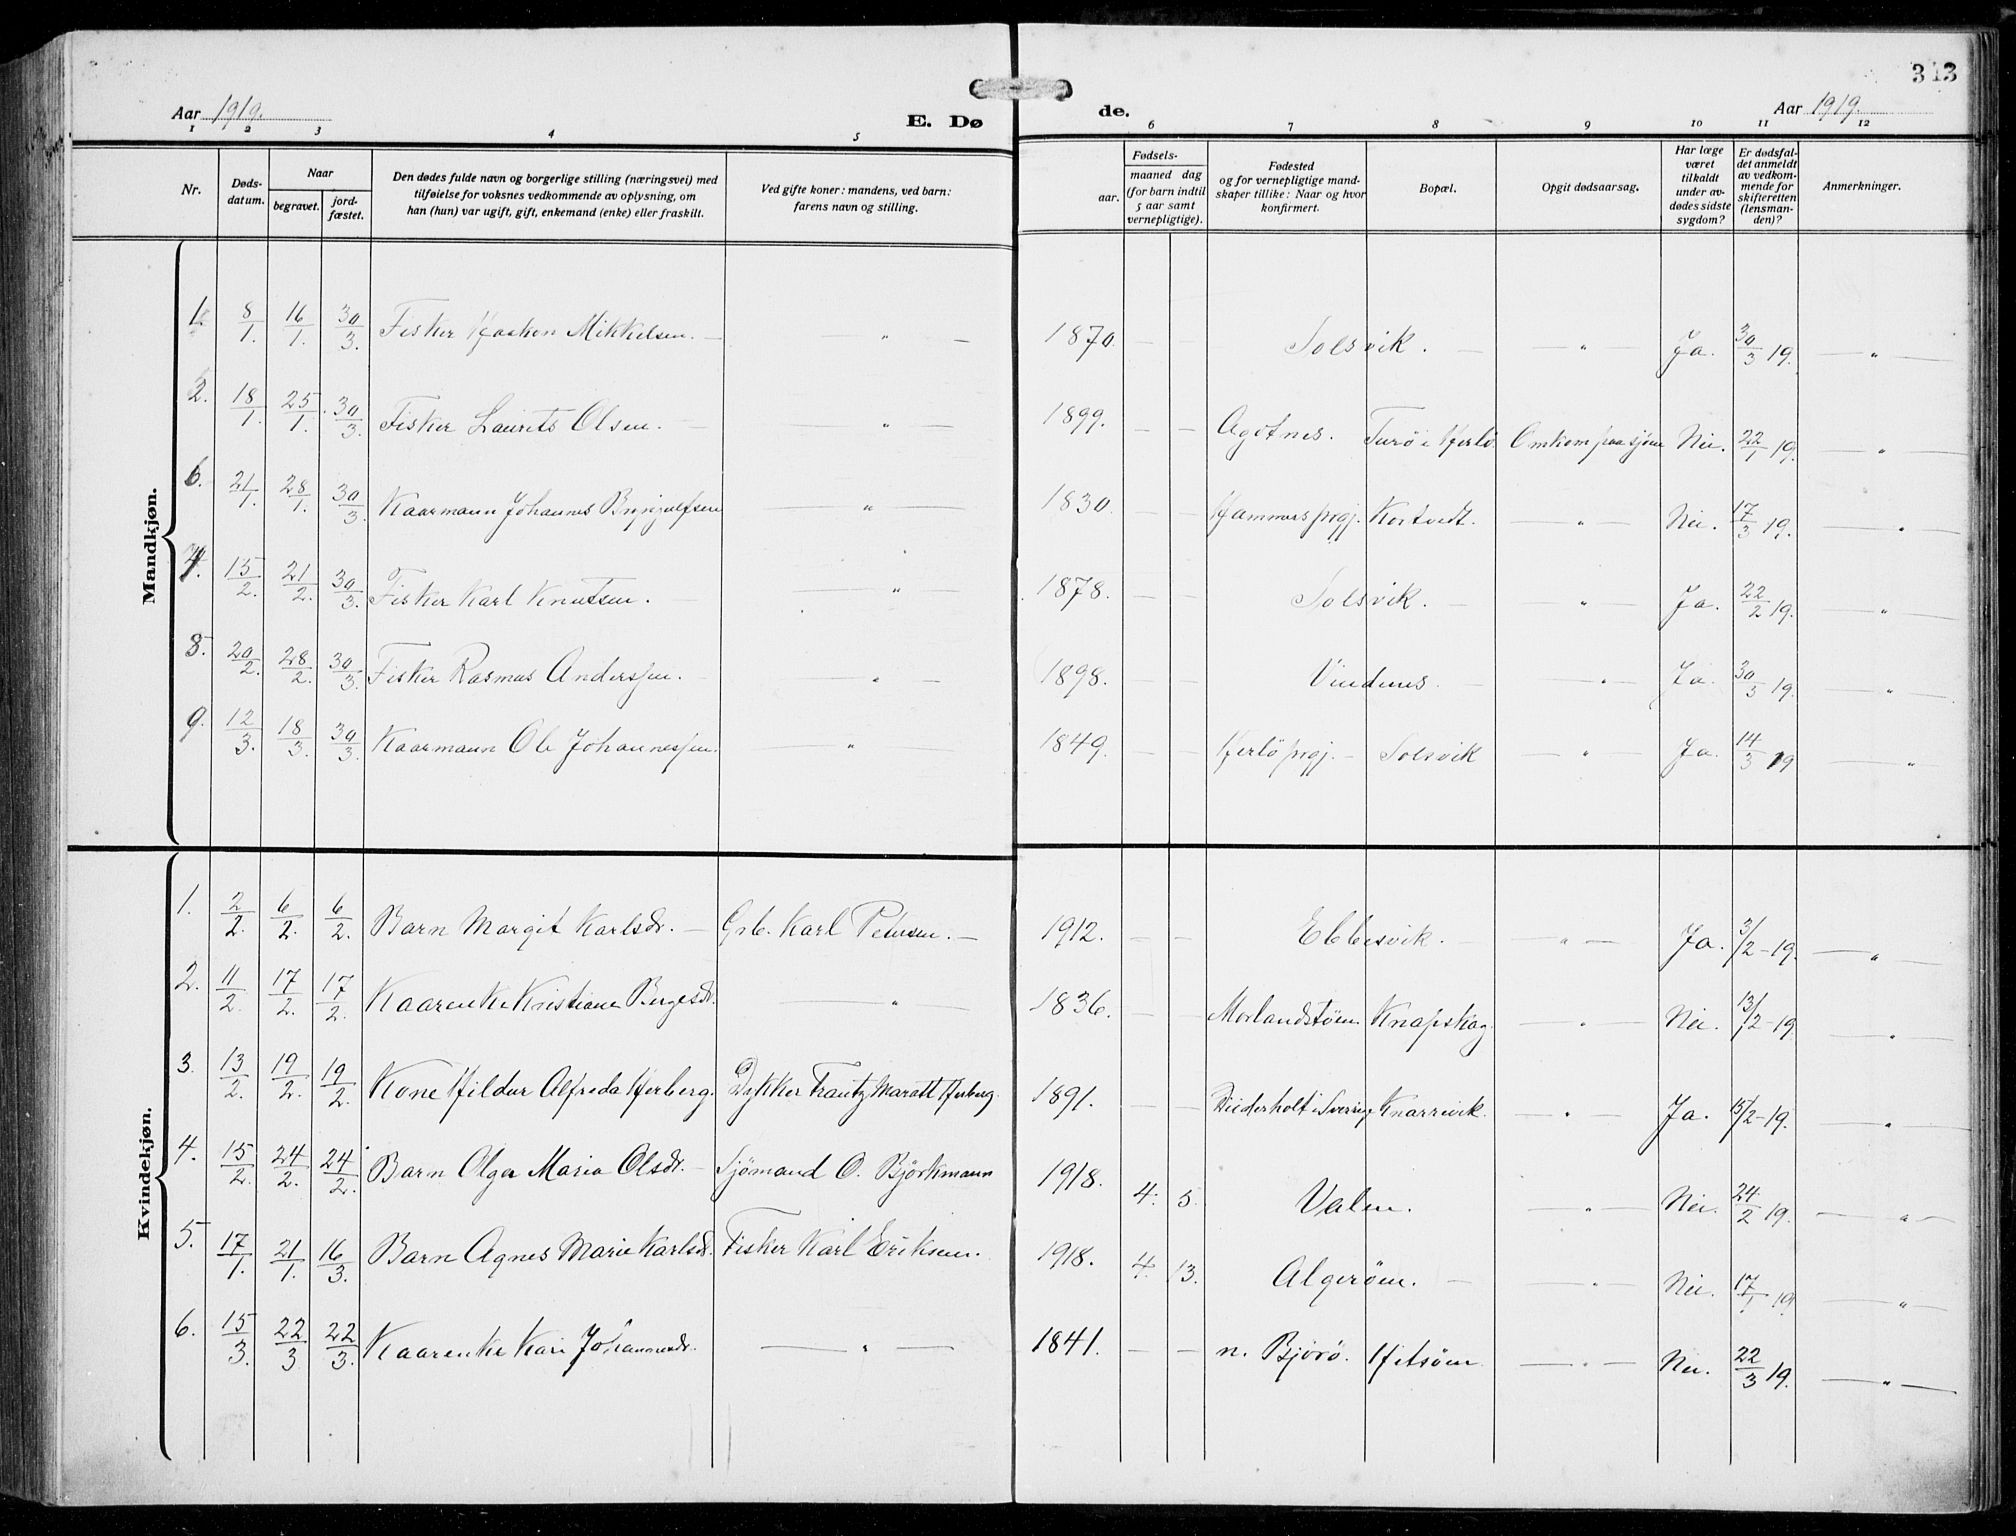 313
Aar 1919. E. Dø de. Aar 1919.
1 2 3 4 5 6 7 8 9 10 11 12
Nr. Døds-datum. Naar begravet. jord-fæstet. Den dødes fulde navn og borgerlige stilling (næringsvei) med tilføielse for voksnes vedkommende av oplysning, om han (hun) var ugift, gift, enkemand (enke) eller fraskilt. Ved gifte koner: mandens, ved barn: farens navn og stilling. Fødsels- aar. maaned dag (for barn indtil 5 aar samt vernepligtige). Fødested og for vernepligtige mand-skaper tillike: Naar og hvor konfirmert. Bopæl. Opgit dødsaarsag. Har læge været tilkaldt under av-dødes sidste sygdom? Er dødsfal-det anmeldt av vedkom-mende for skifteretten (lensman-den)? Anmerkninger.
Mandkjøn.
1. 8/1 16/1. 30/3. Fisker Haakon Mikkelsen. — — " — 1870. — — Solsvik. — — " — Ja. 30/3 19. — " —
2. 18/1. 25/1. 30/3. Fisker Laurits Olsen. — — " — 1899. — — Agotnes. Turö i Herlö Omkom paa sjøen Nei. 22/1 19. — " —
6. 21/1. 28/1. 30/3. Kaarmann Johannes Brynjulfsen — " — 1830. — — Hammers prgj. Kortvedt. — " — Nei. 17/3 19. — " —
7. 15/2. 21/2. 30/3. Fisker Karl Knutsen. — — " — 1878. — — Solsvik. — — " — Ja. 22/2 19. — " —
8. 20/2. 28/2. 30/3. Fisker Rasmus Anderssen. — — " — 1898. — — Vindenes — — " — Ja. 30/3 19. — " —
9. 12/3. 18/3. 30/3. Kaarmann Ole Johannessen. — " — 1849. — — Herlö prgj. — Solsvik — " — Ja. 14/3 19 — " —
Kvindekjøn.
1. 2/2. 6/2. 6/2. Barn Margit Karlsdr. — Grb. Karl Petersen. — 1912. — — Ebbesvik. — — " — Ja. 3/2-19. — " —
2. 11/2. 17/2. 17/2. Kaarenke Kristiane Bergesdr. — " — 1836. — — Morlandstøen Knapskog. — " — Nei. 13/2-19. — " —
3. 13/2. 19/2. 19/2. Kone Hildur Alfreda Herberg. Dykker Frantz Maratt Herberg. 1891. — — i Sverrige Knarrevik. — " — Ja. 15/2-19. — " —
4. 15/2. 24/2. 24/2. Barn Olga Maria Olsdr. — Sjömand O. Björkmann 1918. 4. 5. Valen. — " — Nei. 24/2 19. — " —
5. 17/1. 21/1. 16/3. Barn Agnes Marie Karlsdr. Fisker Karl Eriksen. 1918. 4. 13. Algerøen. — — " — Nei. 17/1 19. — " —
6. 15/3. 22/3 22/3. Kaarenke Kari Johannesdr. — " — 1841. — — n. Bjorö. Hetsöen — " — Nei. 22/3 19. — " —